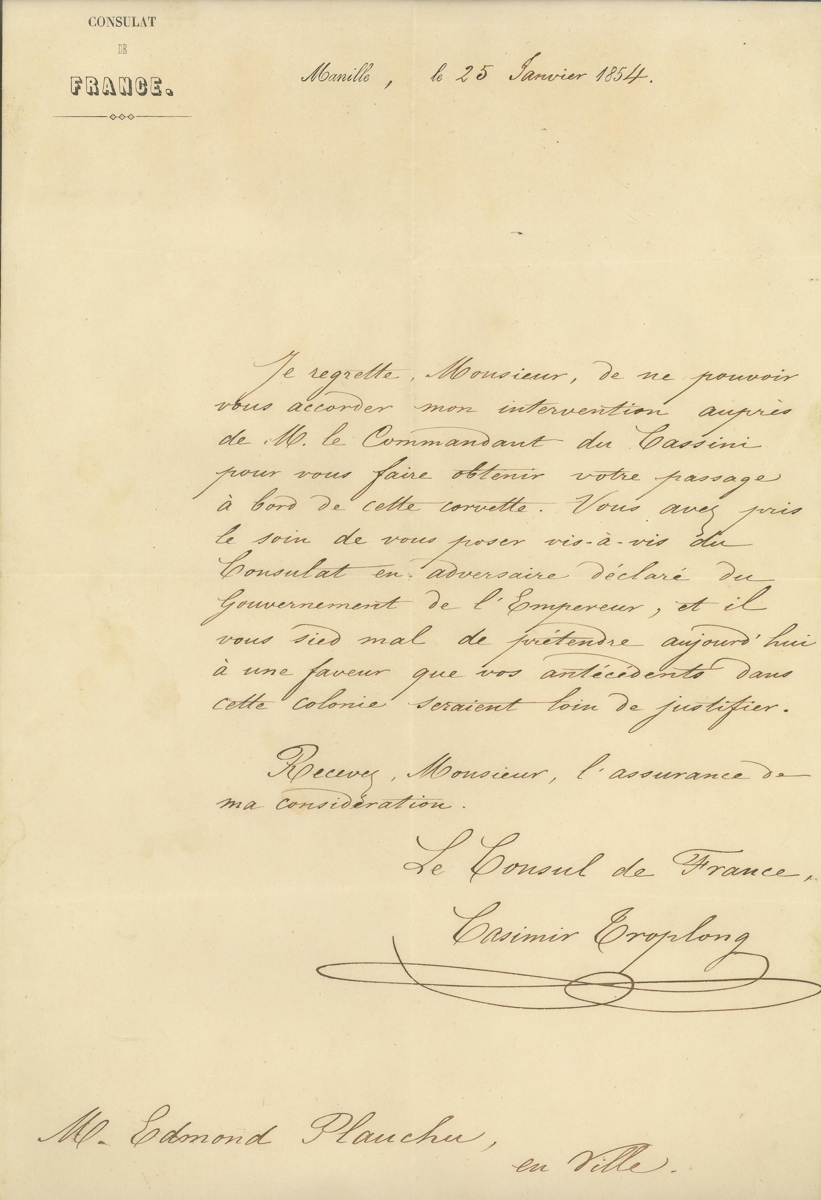 CONSULAT
DE
FRANCE.
Manille, le 25 Janvier 1854.
Je regrette, Monsieur, de ne pouvoir
vous accorder mon intervention auprès
de M. le Commandant du Cassini
pour vous faire obtenir votre passage
à bord de cette corvette. Vous avez pris
le soin de vous poser vis-à-vis du
Consulat en adversaire déclaré du
Gouvernement de l'Empereur, et il
vous sied mal de prétendre aujourd'hui
à une faveur que vos antécédents dans
cette colonie seraient loin de justifier.
Recevez, Monsieur, l'assurance de
ma considération.
Le Consul de France,
Casimir Troplong
M. Edmond Plauchu,
en Ville.